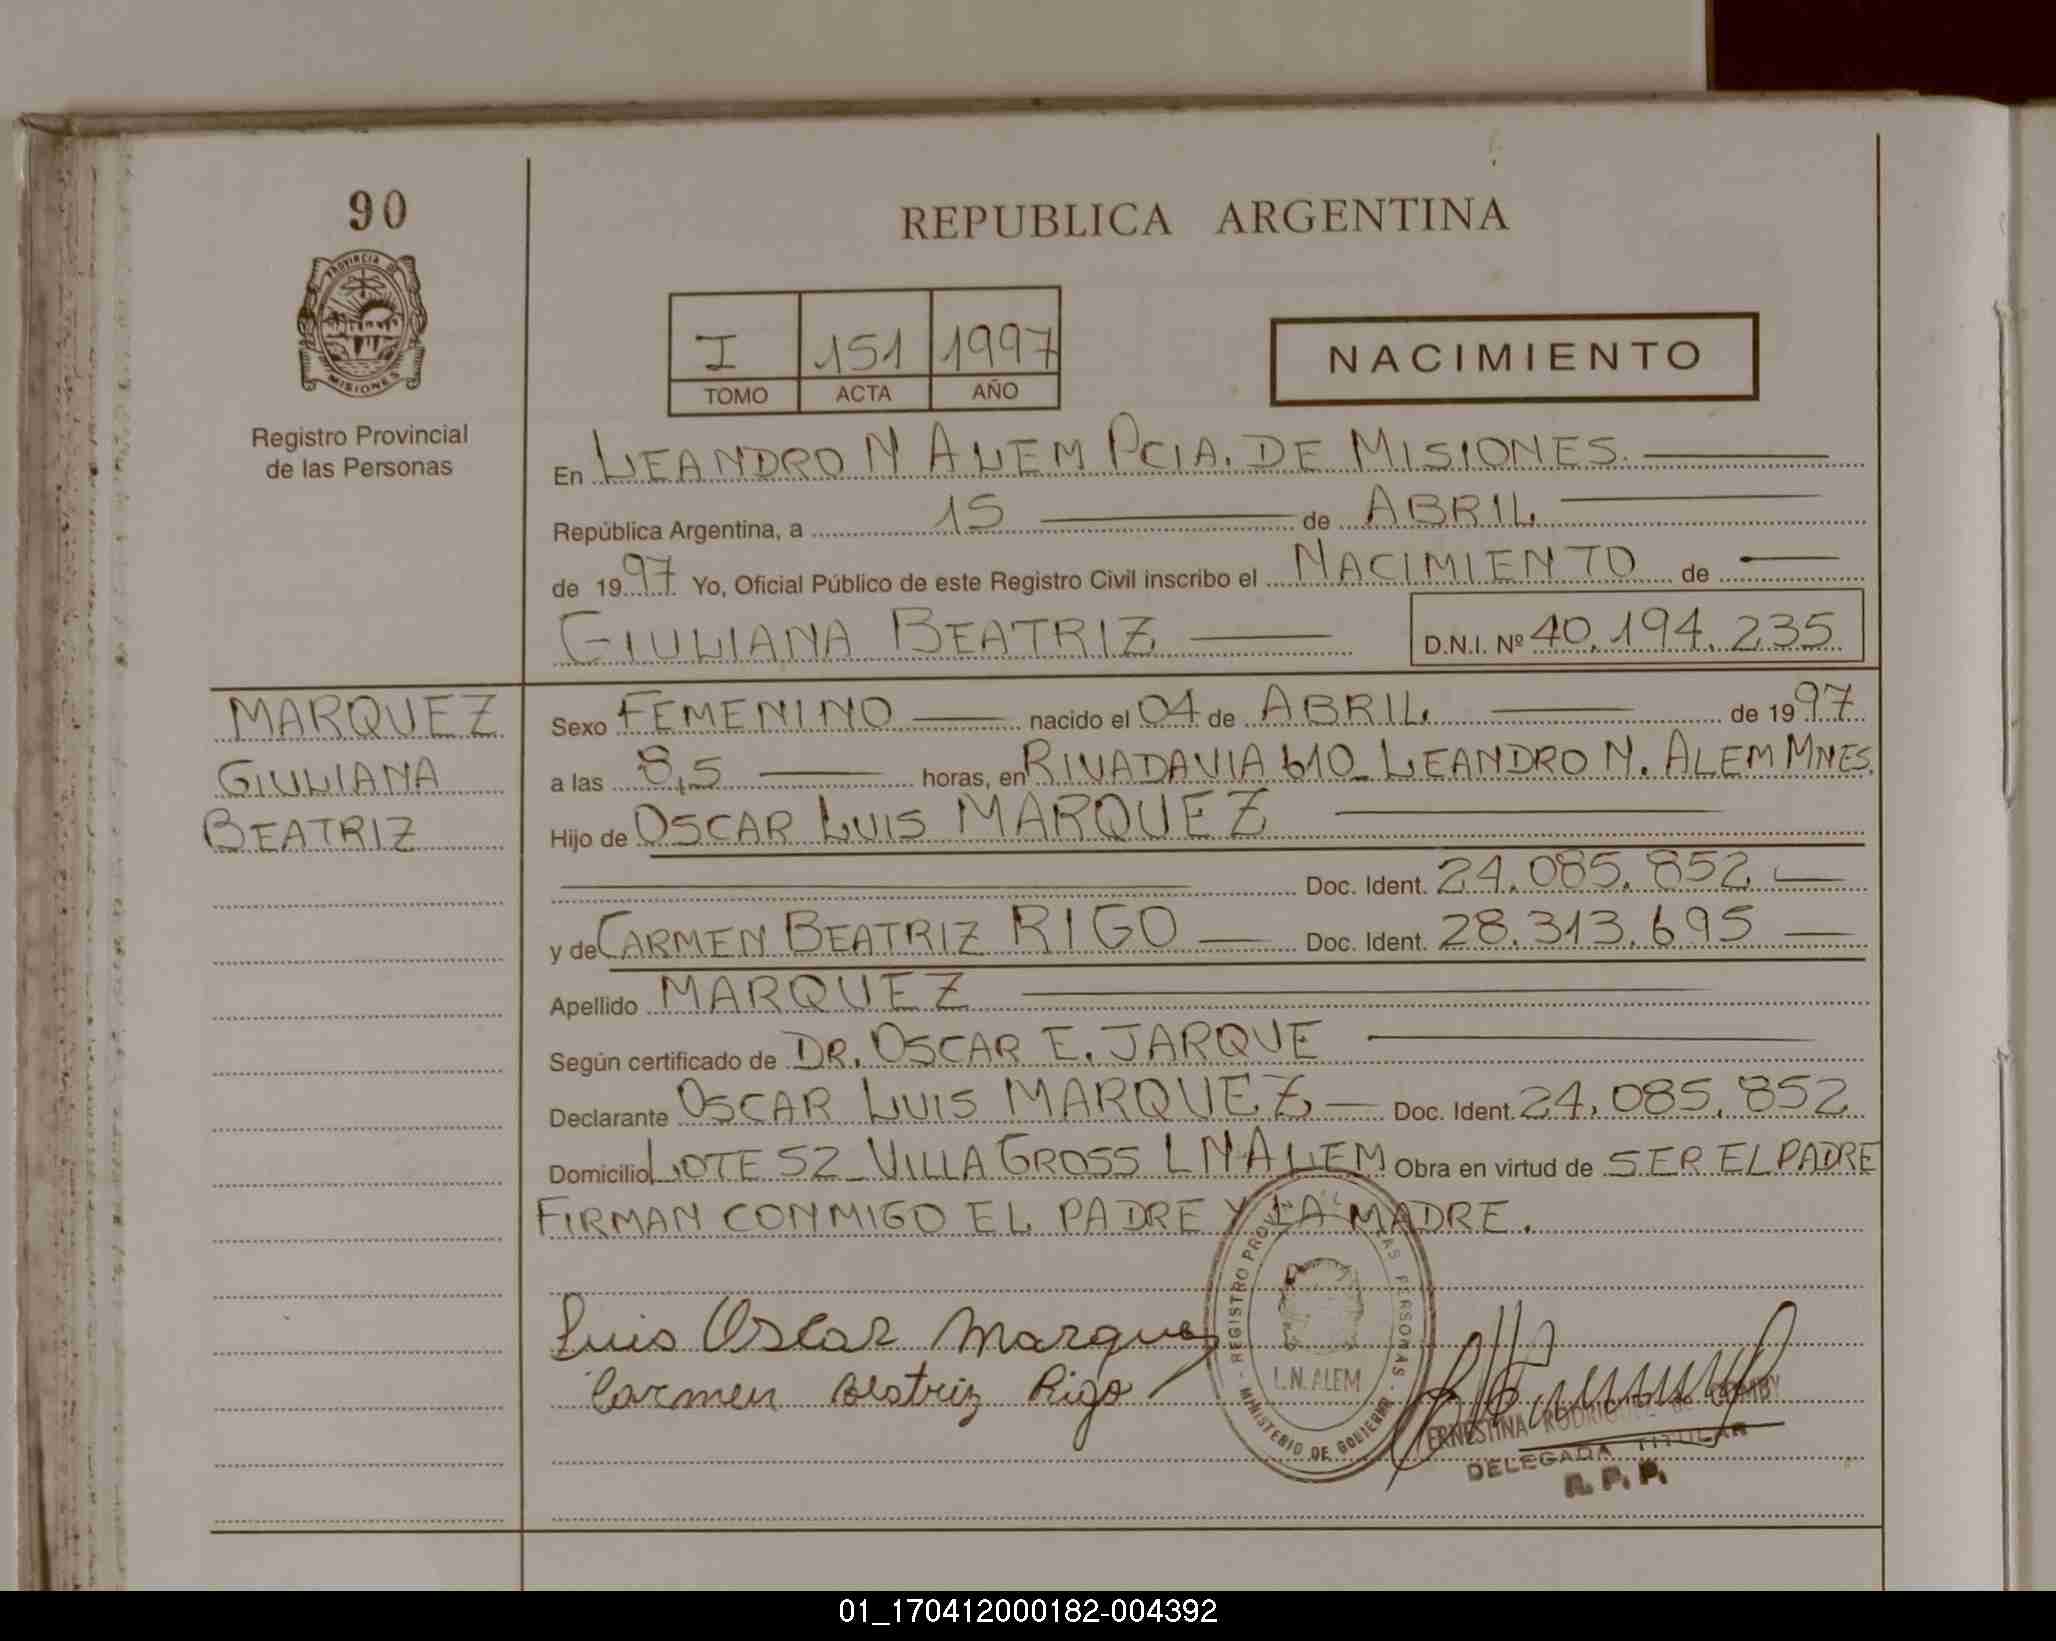 90
PROVINCIA DE
MISIONES
Registro Provincial
de las Personas
REPUBLICA ARGENTINA
I 151 1997
TOMO ACTA AÑO
NACIMIENTO
En LEANDRO N ALEM PCIA. DE MISIONES.
República Argentina, a 15 de ABRIL
de 1997 Yo, Oficial Público de este Registro Civil inscribo el NACIMIENTO de
GIULIANA BEATRIZ D.N.I. Nº 40.194.235
MARQUEZ
GIULIANA
BEATRIZ
Sexo FEMENINO nacido el 04 de ABRIL de 1997
a las 8,5 horas, en RIVADAVIA 610_ LEANDRO N. ALEM MNES.
Hijo de OSCAR LUIS MARQUEZ
Doc. Ident. 24.085.852
y de CARMEN BEATRIZ RIGO Doc. Ident. 28.313.695
Apellido MARQUEZ
Según certificado de DR. OSCAR E. JARQUE
Declarante OSCAR LUIS MARQUEZ Doc. Ident. 24.085.852
Domicilio LOTE 52_ VILLA GROSS L N ALEM Obra en virtud de SER EL PADRE
FIRMAN CONMIGO EL PADRE Y LA MADRE.
Luis Oscar Marquez
Carmen Beatriz Rigo
REGISTRO PROV LAS PERSONAS
L.N. ALEM
MINISTERIO DE GOBIERNO
ERNESTINA
DELEGADA TITULAR
R. P. P.
01_170412000182-004392